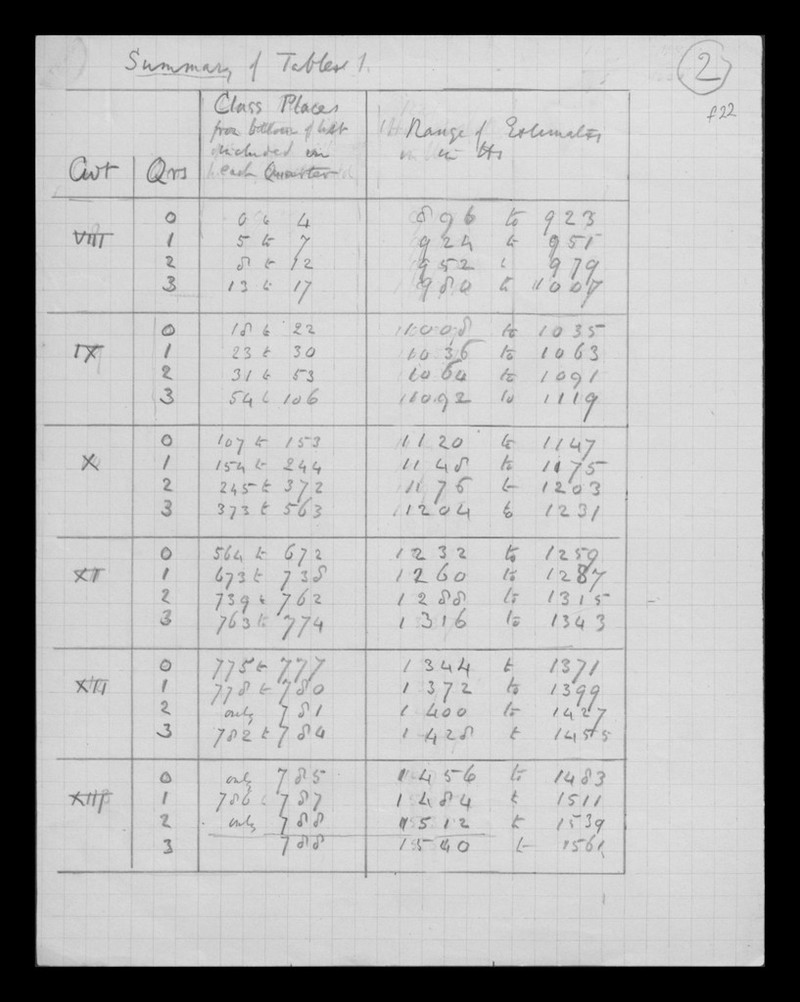 Summary of Tables 1.
2
f22
Class Places
from bottom of list
included in
each Quarter
Range of Estimates
in lbs
Cwt Qrs
0 0 to 4 896 to 923
VIII 1 5 to 7 924 to 951
2 8 to 12 952 to 979
3 13 to 17 980 to 1007
0 18 to 22 1008 to 1035
IX 1 23 to 30 1036 to 1063
2 31 to 53 1064 to 1091
3 54 to 106 1092 to 1119
0 107 to 153 1120 to 1147
X 1 154 to 244 1148 to 1175
2 245 to 372 1176 to 1203
3 373 to 563 1204 to 1231
0 564 to 672 1232 to 1259
XI 1 673 to 738 1260 to 1287
2 739 to 762 1288 to 1315
3 763 to 774 1316 to 1343
0 775 to 777 1344 to 1371
XII 1 778 to 780 1372 to 1399
2 only 781 1400 to 1427
3 782 to 784 1428 to 1455
0 only 785 1456 to 1483
XIII 1 786 to 787 1484 to 1511
2 only 788 1512 to 1539
3 788 1540 to 1561